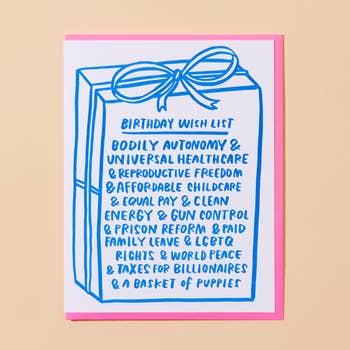 BIRTHDAY WISH LIST
BODILY AUTONOMY &
UNIVERSAL HEALTHCARE
& REPRODUCTIVE FREEDOM
& AFFORDABLE CHILDCARE
& EQUAL PAY & CLEAN
ENERGY & GUN CONTROL
& PRISON REFORM & PAID
FAMILY LEAVE & LGBTQ
RIGHTS & WORLD PEACE
& TAXES FOR BILLIONAIRES
& A BASKET OF PUPPIES